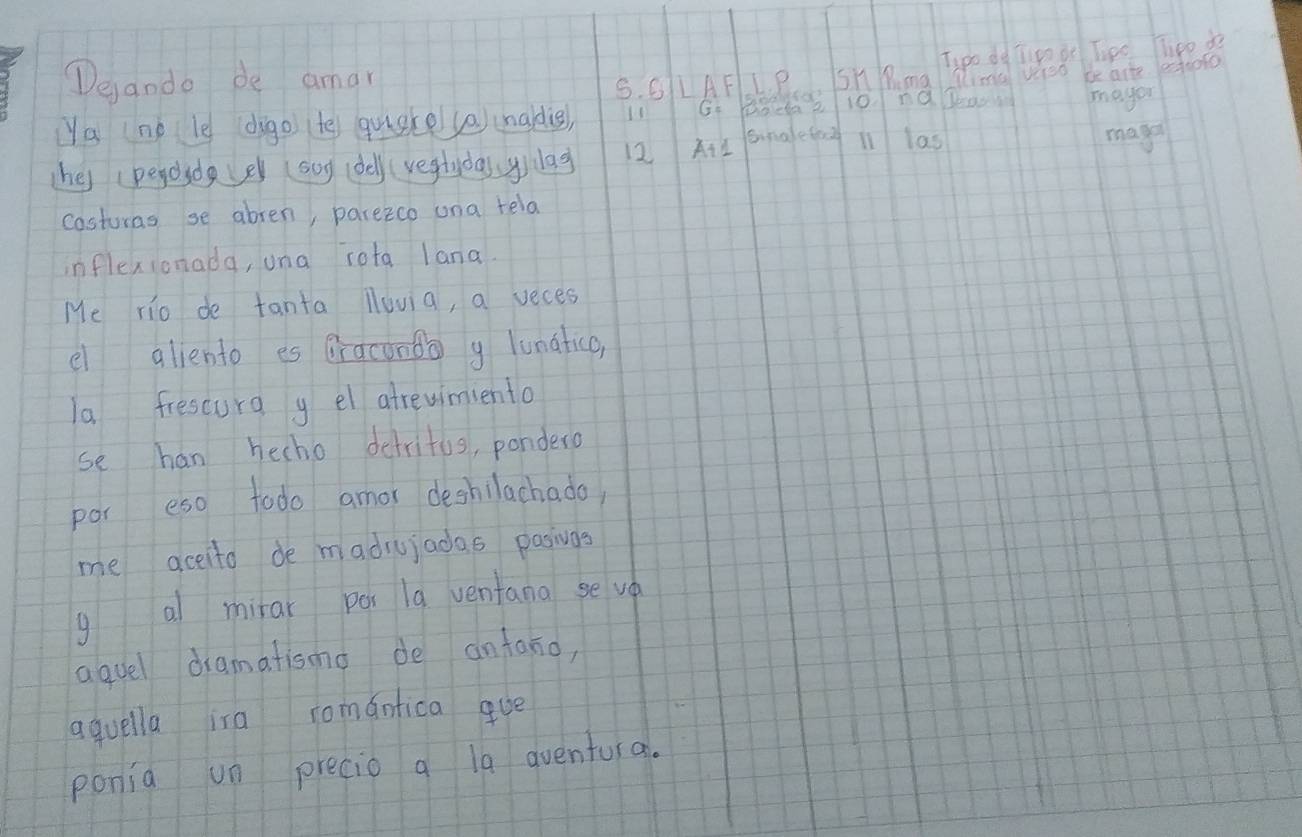 Dejando de amar
S.G L A F L.P. SM Rima Tipo de Rima Tipo de verso Tipo de arte Tipo de
Ya no le digo te quiero a nadie, 11 G= 2 10 na mayor
he perdido el sog del vestido y las 12 A+1 Sinalefa 11 las mayor
costuras se abren, parezco una tela
inflexionada, una rota lana.
Me río de tanta lluvia, a veces
el aliento es iracondo y lunático,
la frescura y el atrevimiento
se han hecho detritus, pondero
por eso todo amor deshilachado,
me aceito de madrujadas pasivas
y al mirar por la ventana se va
aquel dramatismo de antaño,
aquella ira romántica que
ponía un precio a la aventura.